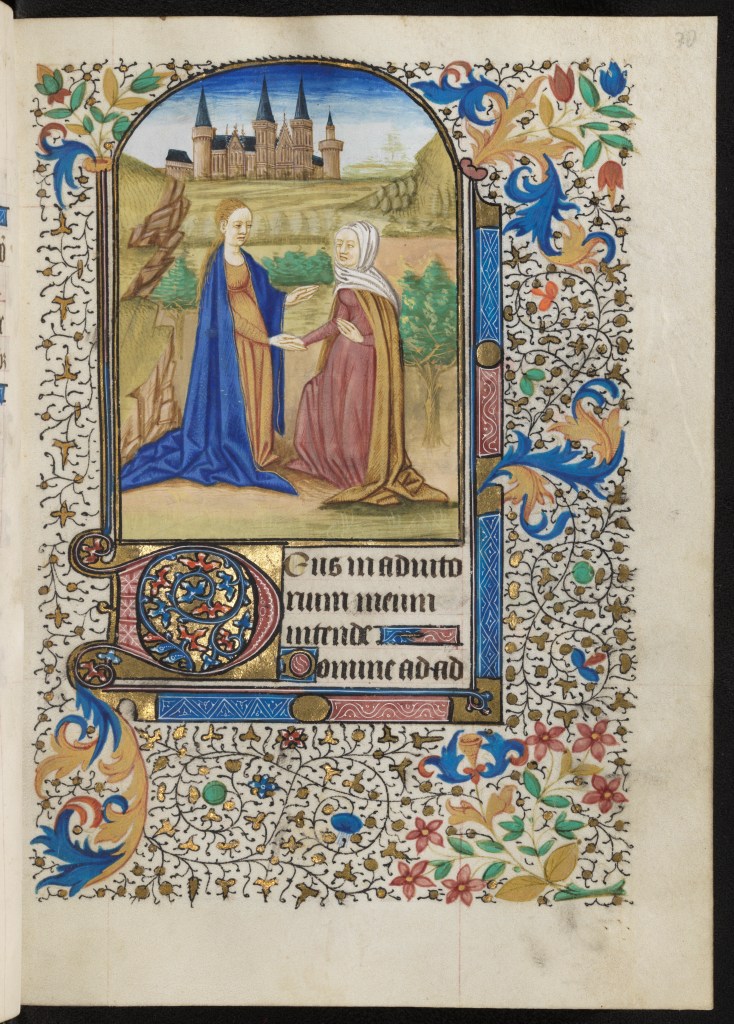 30
Deus in adiuto
rium meum
intende
Domine ad ad